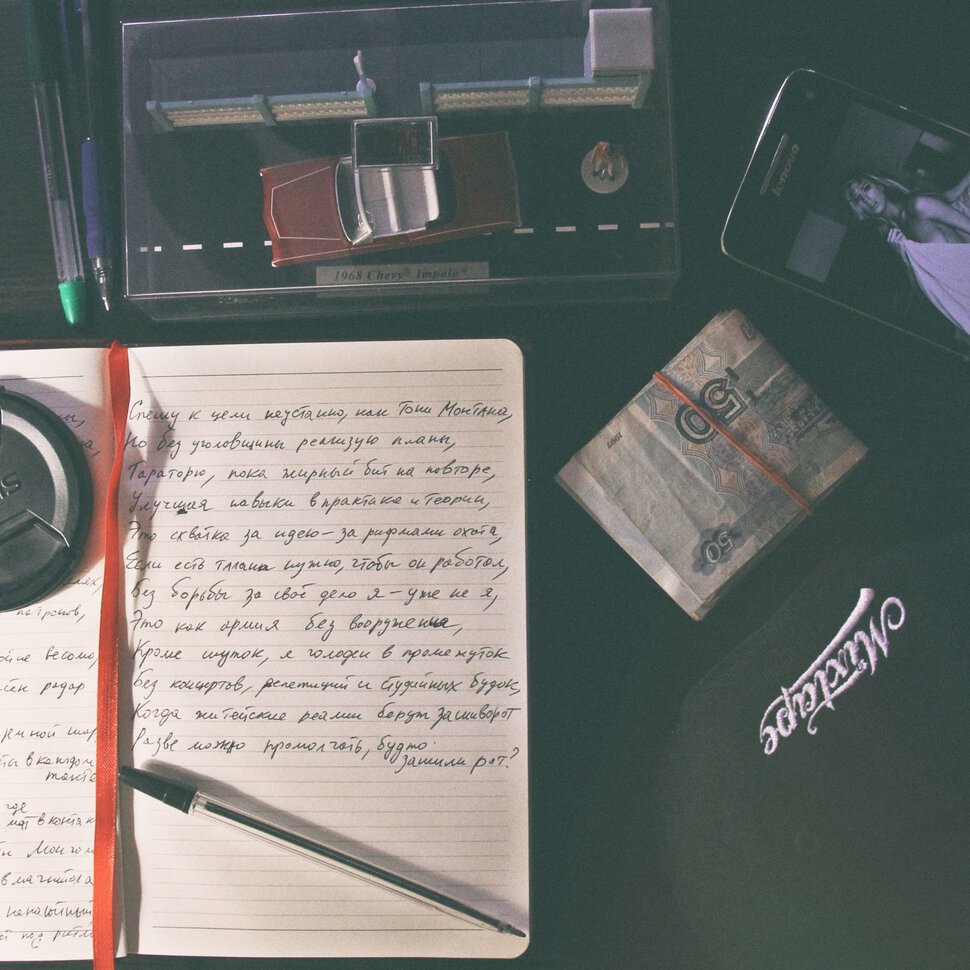 1968 Chevy Impala
lenovo
50
1997
50
Mixtape
Спешу к цели неустанно, как Тони Монтана,
Но без уголовщины реализую планы,
Тараторю, пока жирный бит на повторе,
Улучшая навыки в практике и теории,
Это схватка за идею – за рифмами охота,
Если есть талант нужно, чтобы он работал,
Без борьбы за своё дело я – уже не я,
Это как армия без вооружения,
Кроме шуток, я голоден в промежуток
Без концертов, репетиций и студийных будок,
Когда житейские реалии берут за шиворот
Разве можно промолчать, будто
зашили рот?
патронов,
весомо,
радар
ты в каждом
такте
где
мат в контак
Монгол
в магнитола
под ритм